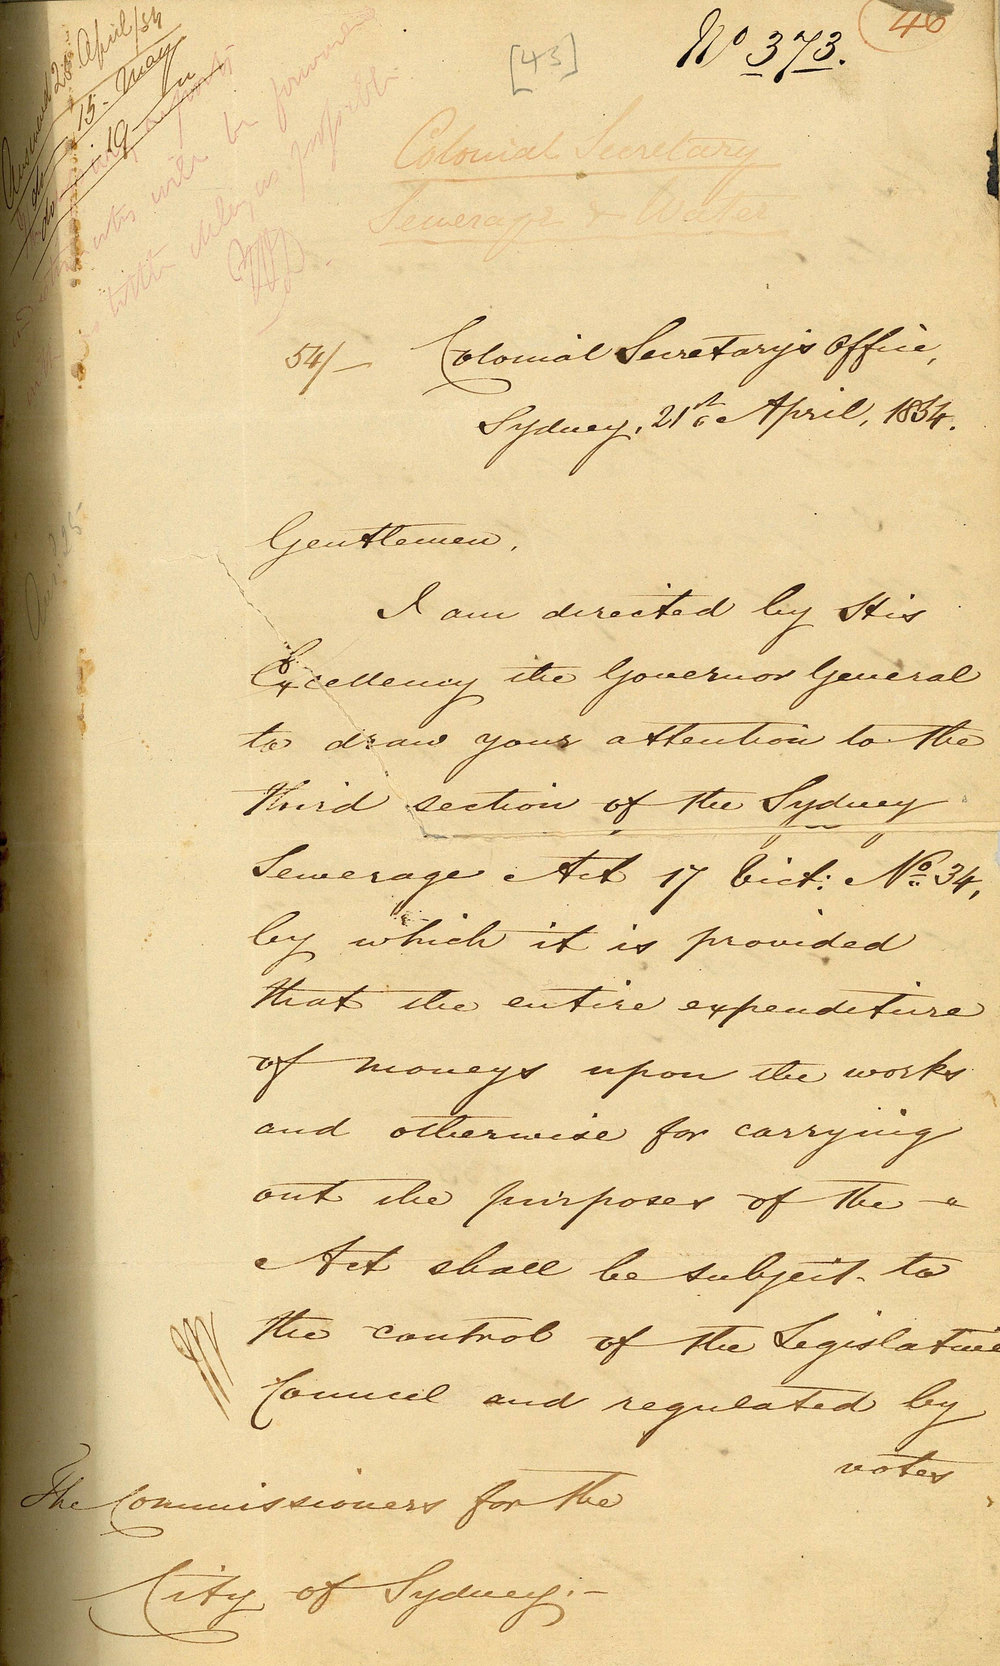 46
[43]
No 373.
Answered 26 April/54
do 15 May
do 19
will be forwarded
with as little delay as possible
Colonial Secretary
Sewerage & Water
54/-
Colonial Secretary's Office,
Sydney, 21st April, 1854.
Gentlemen,
I am directed by His
Excellency the Governor General
to draw your attention to the
third section of the Sydney
Sewerage Act 17 Vict: No. 34,
by which it is provided
that the entire expenditure
of moneys upon the works
and otherwise for carrying
out the purposes of the -
Act shall be subject to
the control of the Legislative
Council and regulated by
votes
The Commissioners for the
City of Sydney:-